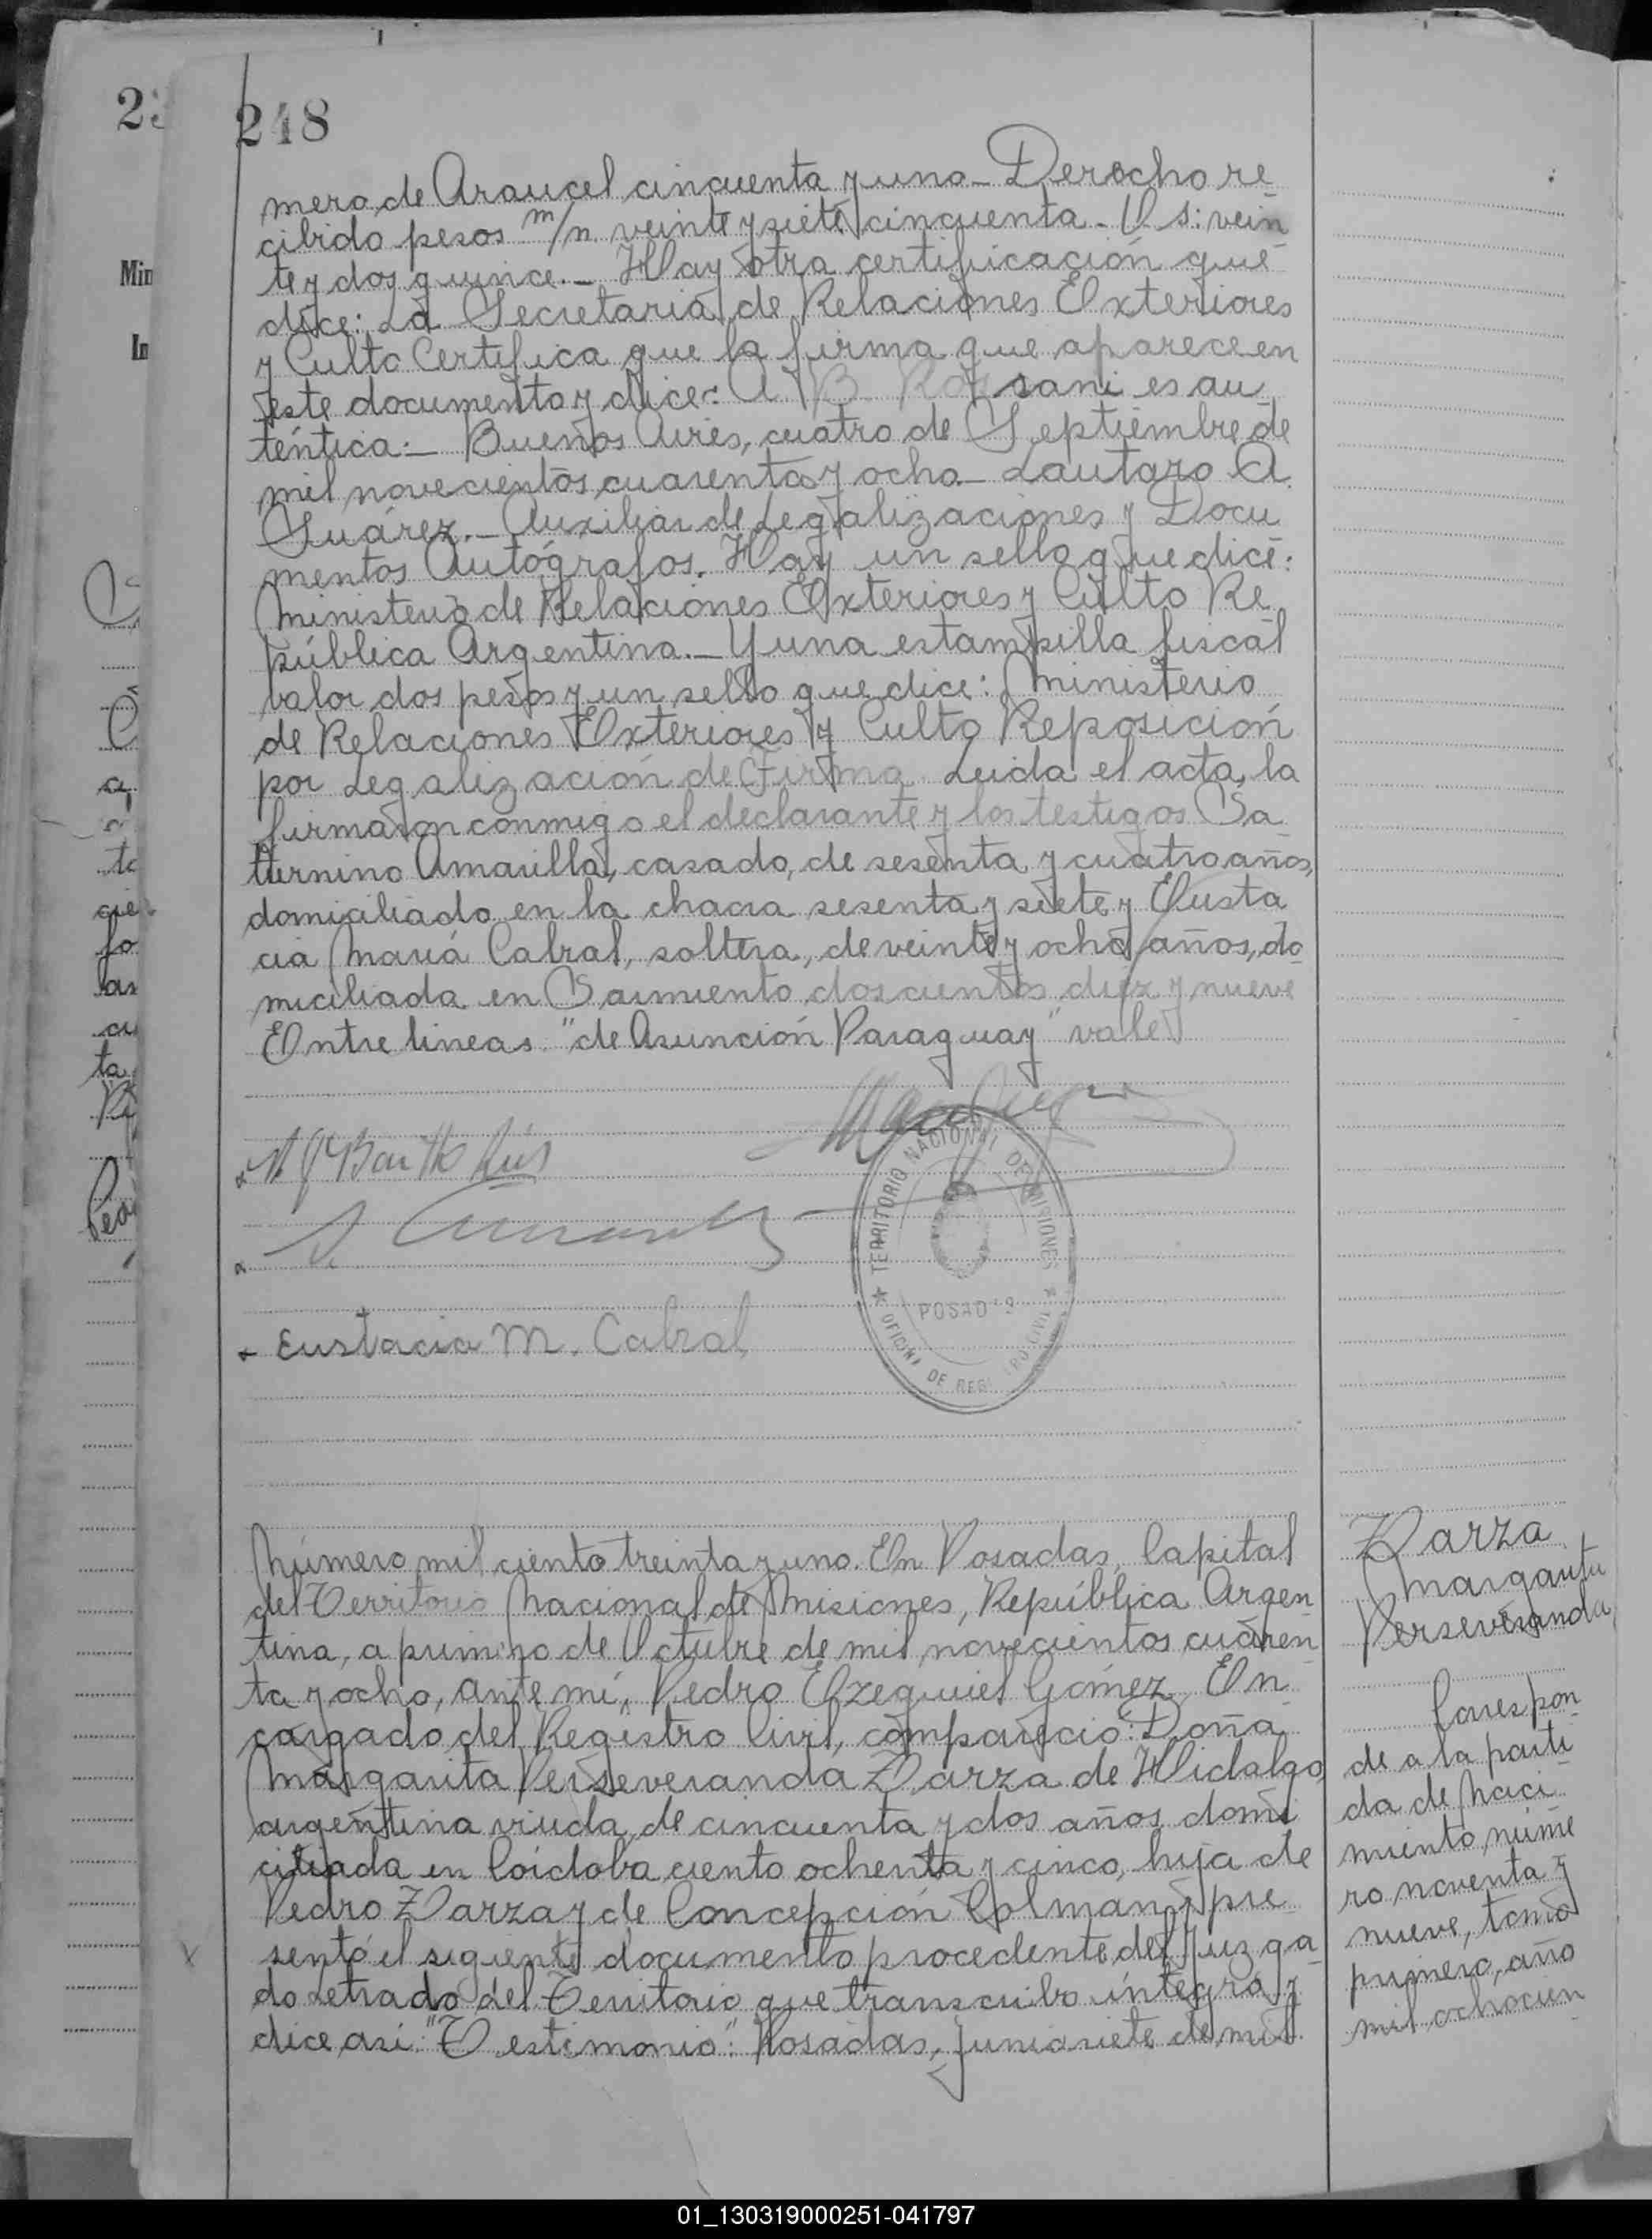 248
mero de Arancel cincuenta y uno._ Derecho re
cibido pesos m/n veinte y siete cincuenta._ O. S: vein
te y dos quince._ Hay otra certificación que
dice: La Secretaría de Relaciones Exteriores
y Culto Certifica que la firma que aparece en
este documento y dice: A. B. sani es au
téntica:_ Buenos Aires, cuatro de Septiembre de
mil novecientos cuarenta y ocho._ Lautaro A.
Suárez._ Auxiliar de Legalizaciones y Docu
mentos Autógrafos. Hay un sello que dice:
Ministerio de Relaciones Exteriores y Culto Re
pública Argentina._ Y una estampilla fiscal
valor dos pesos y un sello que dice: Ministerio
de Relaciones Exteriores y Culto Reposición
por Legalización de Firma. Leida el acta, la
firmaron conmigo el declarante y los testigos Sa
turnino Amarilla, casado, de sesenta y cuatro años,
domiciliado en la chacra sesenta y siete y Eusta
cia María Cabral, soltera, de veinte y ocho años, do
miciliada en Sarmiento doscientos diez y nueve
Entre lineas: "de Asunción Paraguay" vale
TERRITORIO NACIONAL DE MISIONES
POSADAS
OFICINA DE REGISTRO CIVIL
Eustacia M. Cabral
Número mil ciento treinta y uno. En Posadas, Capital
del Territorio Nacional de Misiones, República Argen
tina, a primero de Octubre de mil novecientos cuaren
ta y ocho, ante mí, Pedro Ezequiel Gómez, En
cargado del Registro Civil, compareció: Doña
Margarita Perseveranda Zarza de Hidalgo,
argentina viuda, de cincuenta y dos años, domi
ciliada en Córdoba ciento ochenta y cinco, hija de
Pedro Zarza y de Concepción Colman y pre
sentó el siguiente documento procedente del Juzga
do Letrado del Territorio que transcribo íntegro y
dice asi: "Testimonio": Posadas, junio siete de mil
Zarza
Margarita
Perseveranda
Corespon
de a la parti
da de Naci
miento, núme
ro noventa y
nueve, tomo
primero, año
mil ochocien
01_130319000251-041797